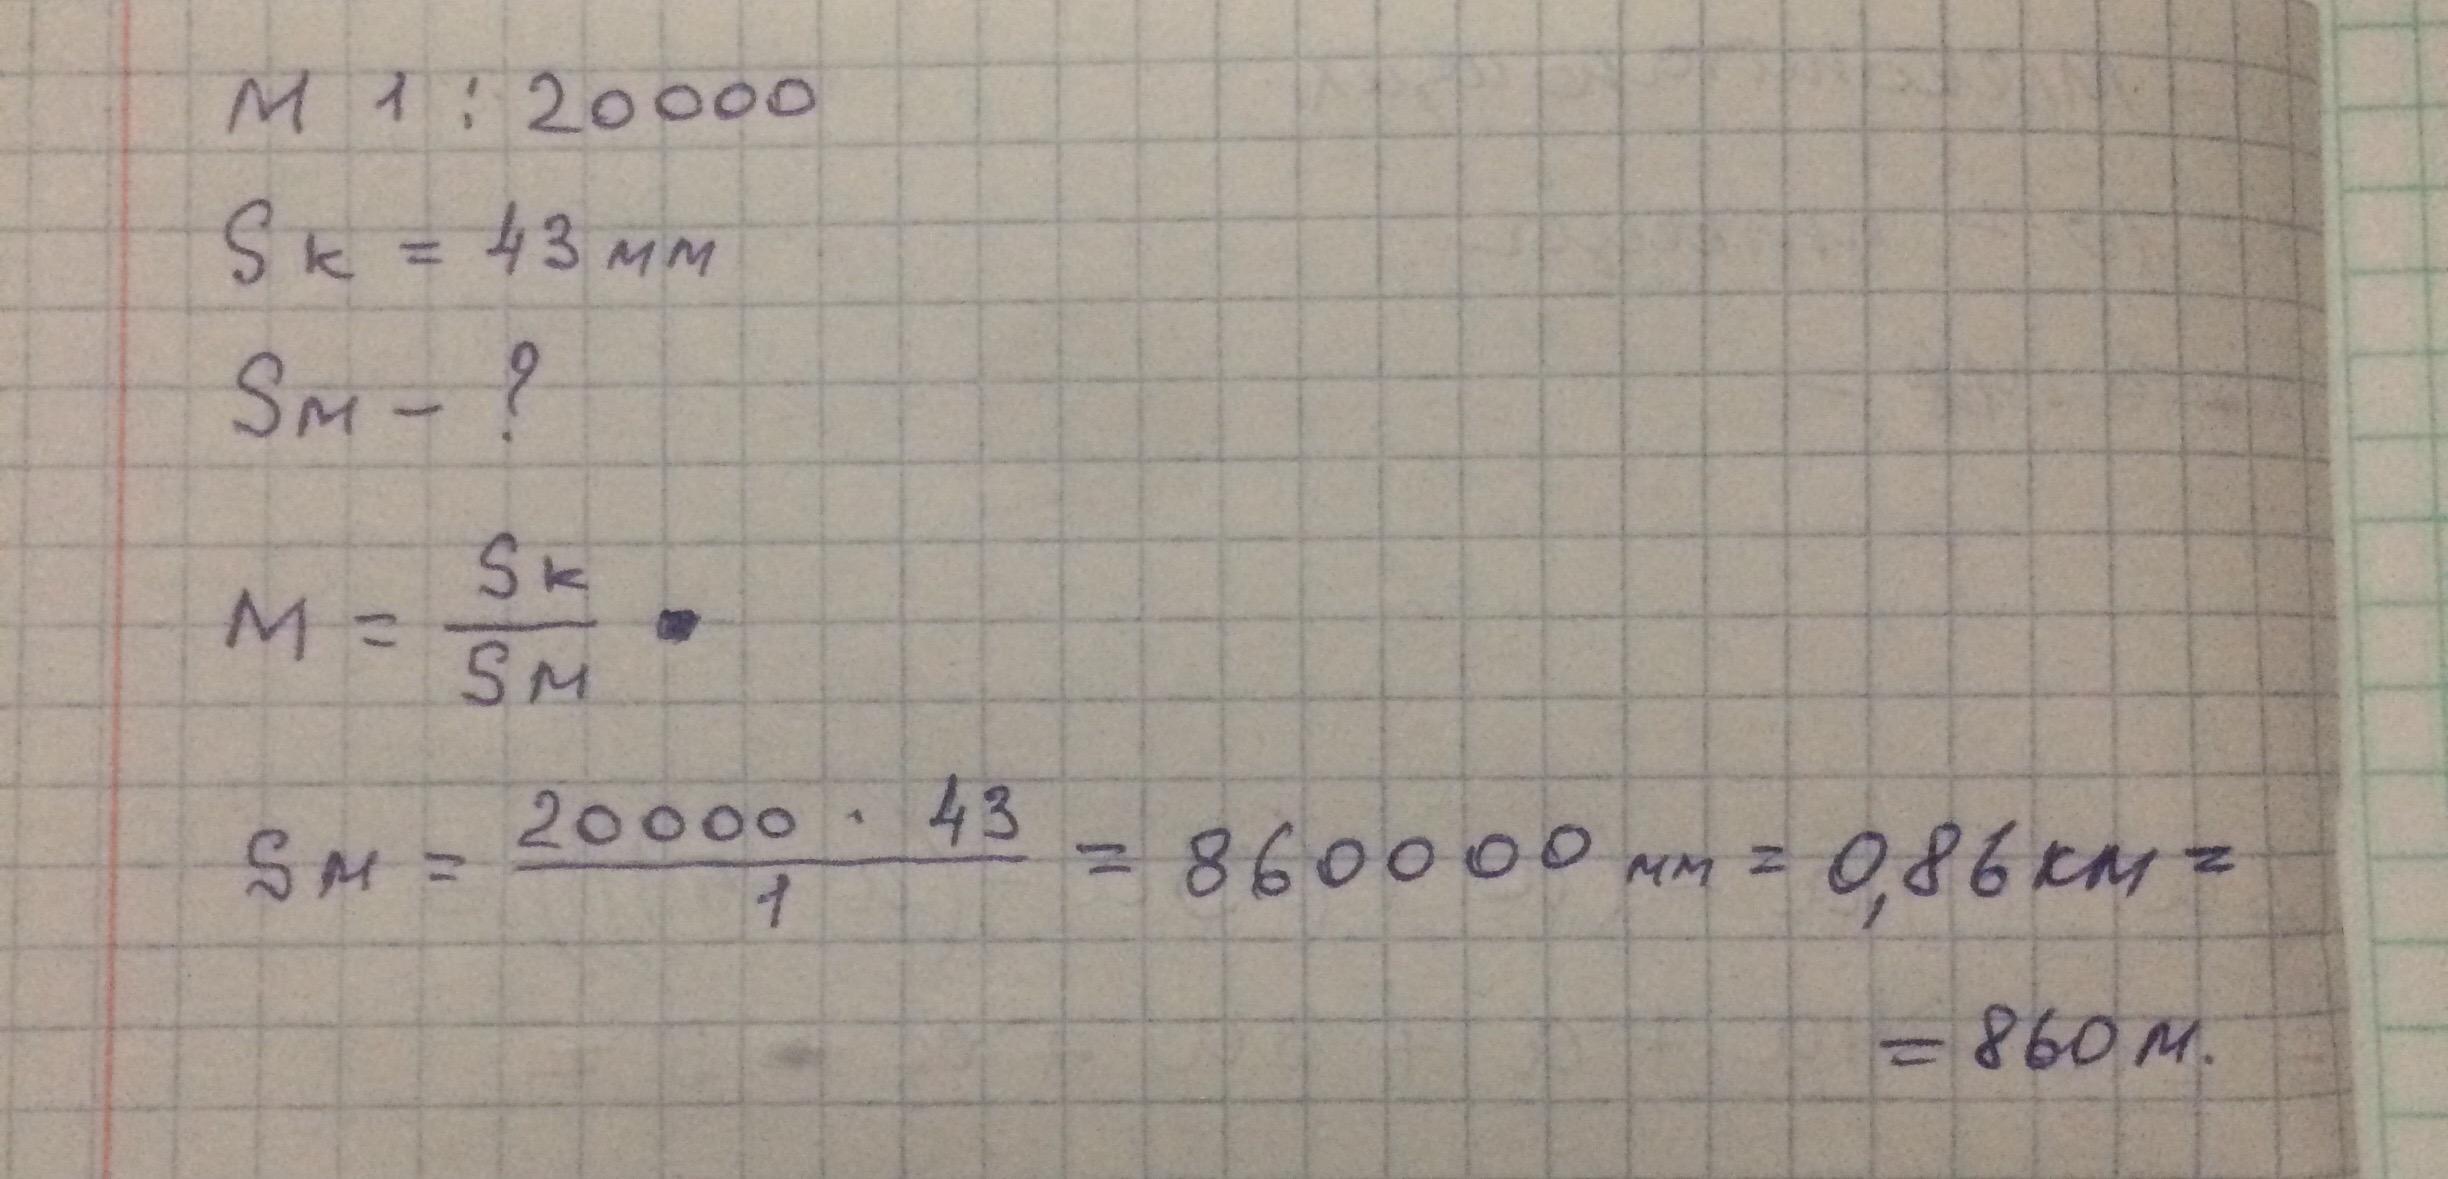 М 1 : 20000
Sк = 43 мм
Sм - ?
М = Sк / Sм
Sм = 20000 · 43 / 1 = 860000 мм = 0,86 км =
= 860 м.